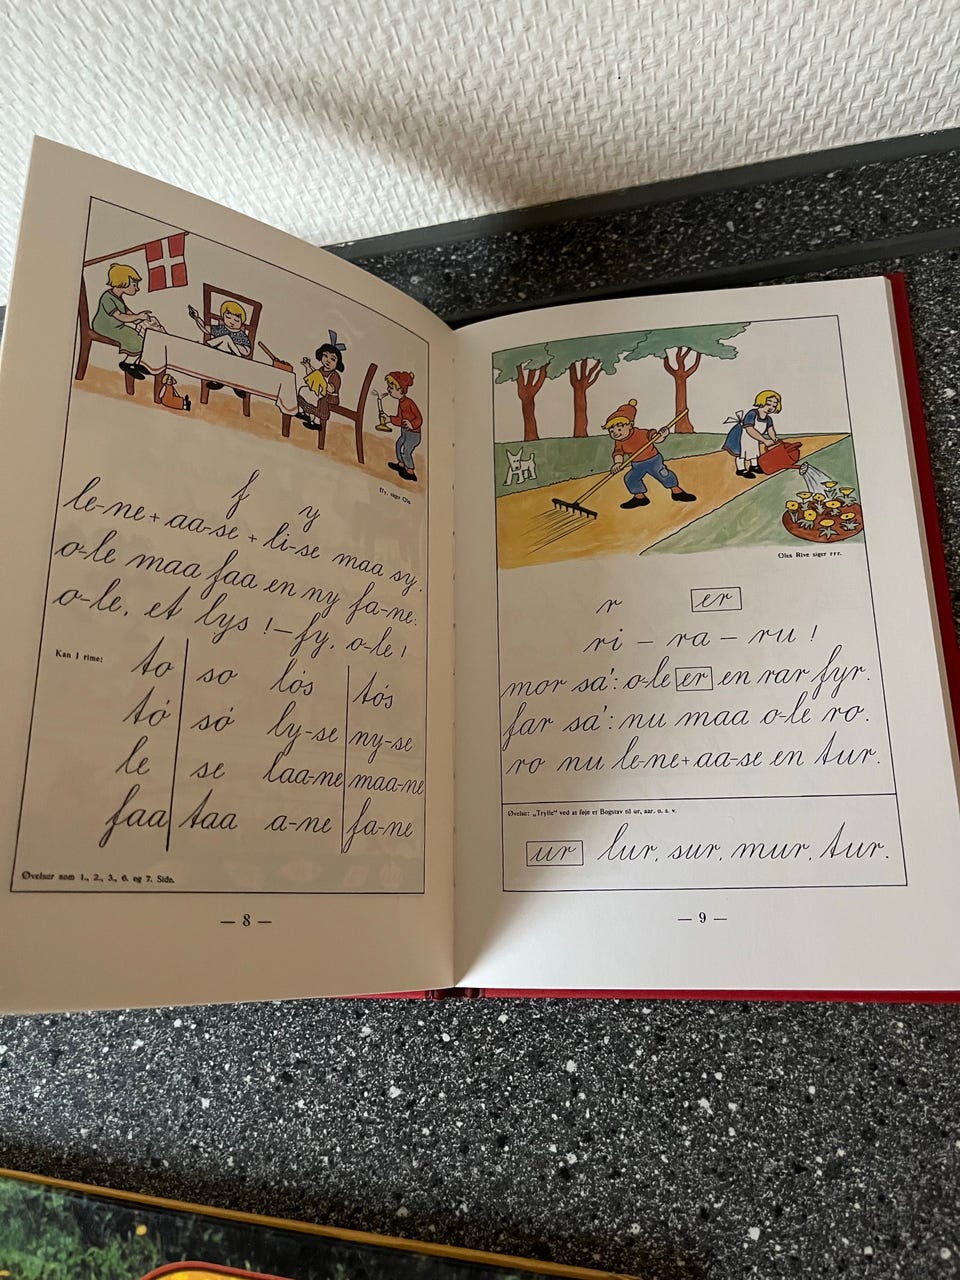 ffy, siger Ole.
f y
le-ne + aa-se + li-se maa sy.
o-le maa faa en ny fa-ne.
o-le, et lys! – fy, o-le!
Kan I rime:
to so lós tós
tó só ly-se ny-se
le se laa-ne maa-ne
faa taa a-ne fa-ne
Øvelser som 1., 2., 3., 6. og 7. Side.
— 8 —
Oles Rive siger rrr.
r er
ri – ra – ru!
mor sa': o-le er en rar fyr.
far sa': nu maa o-le ro.
ro nu le-ne + aa-se en tur.
Øvelse: „Trylle“ ved at føje et Bogstav til ur, aar, o. s. v.
ur lur, sur, mur, tur.
— 9 —